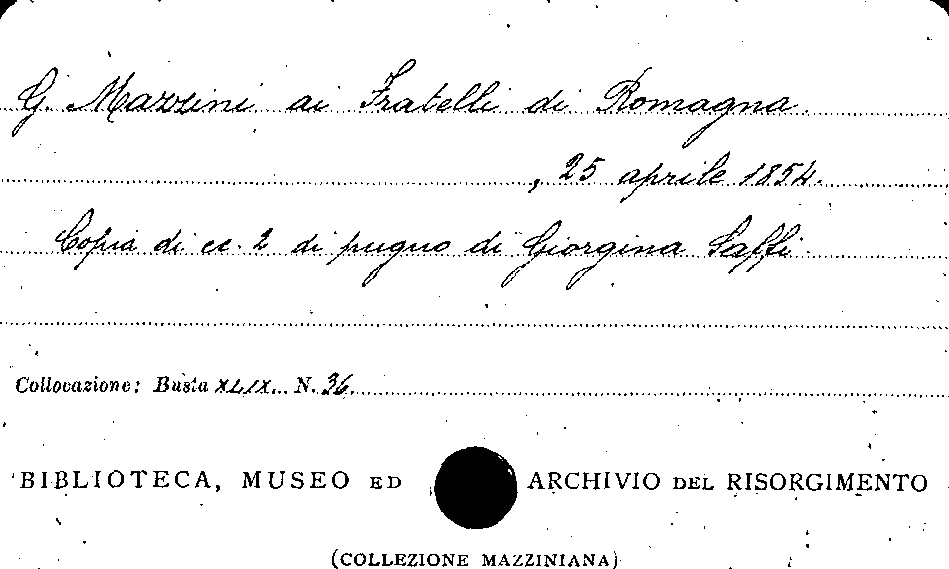 G. Mazzini ai Fratelli di Romagna.
, 25 aprile 1854.
Copia di cc. 2 di pugno di Giorgina Saffi.
Collocazione: Busta XLIX. N. 36.
BIBLIOTECA, MUSEO ED ARCHIVIO DEL RISORGIMENTO
(COLLEZIONE MAZZINIANA)